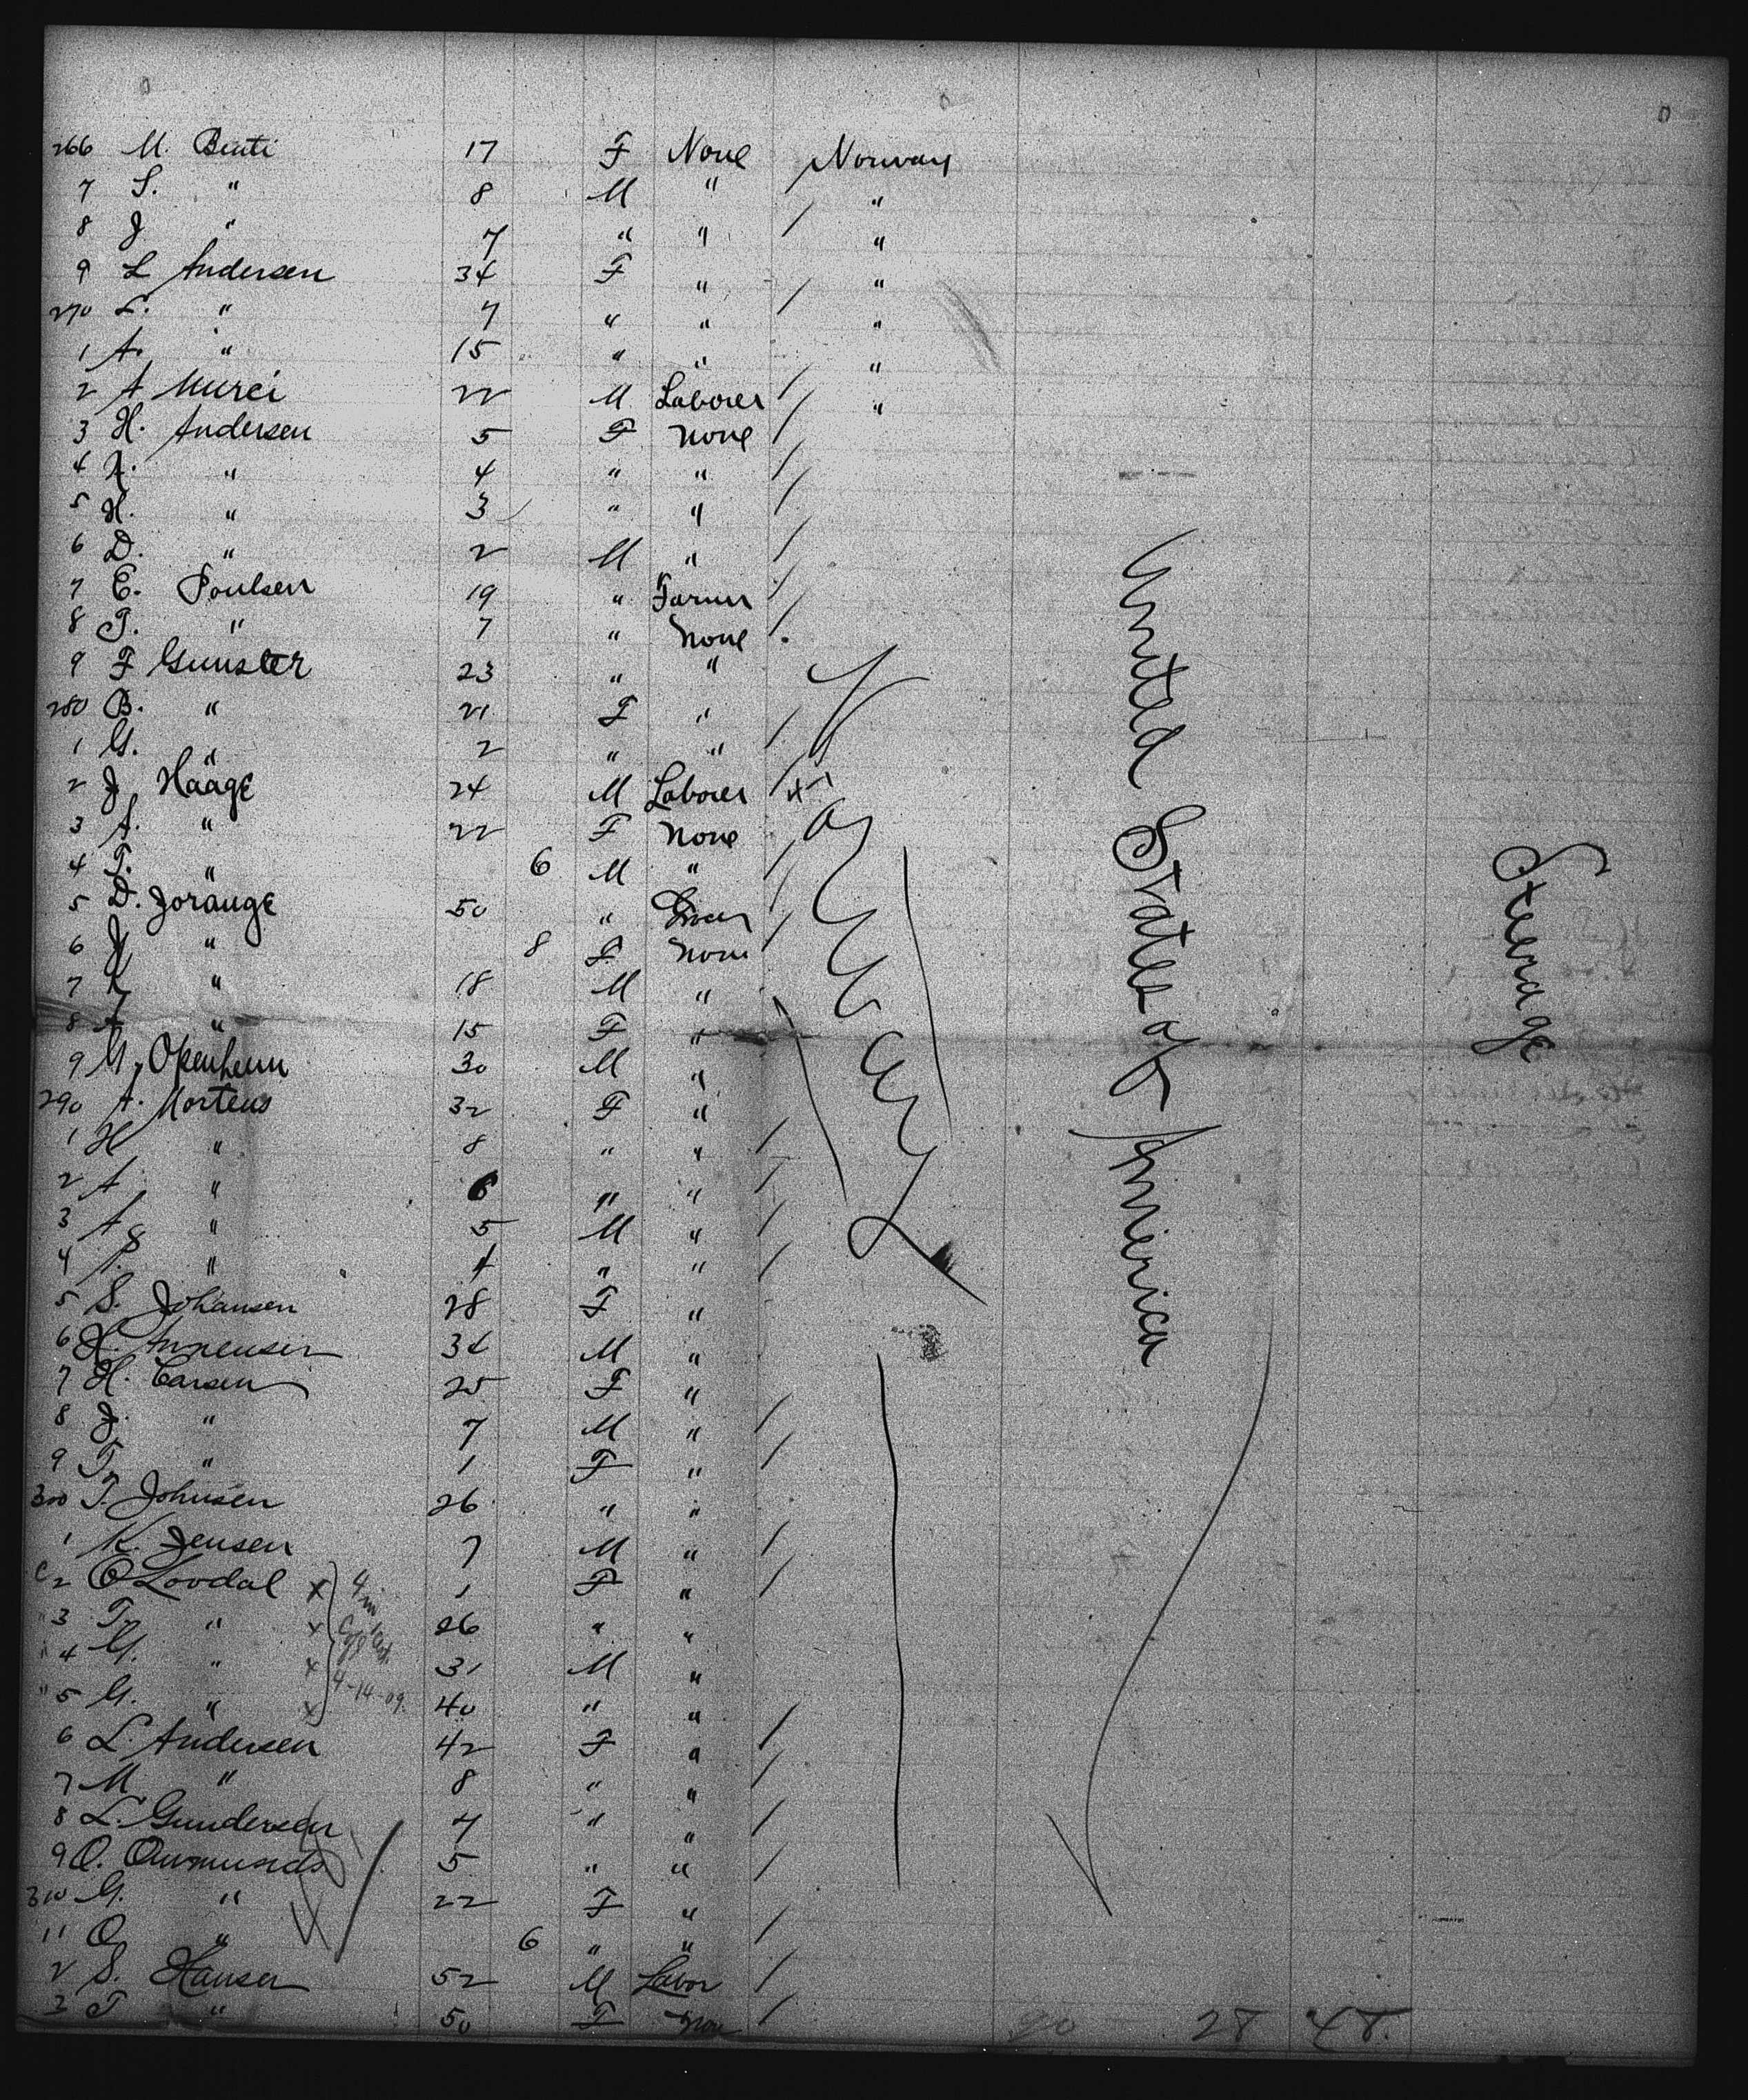 266 M. Benti 17 F None Norway
7 S. " 8 M " "
8 J " 7 " " "
9 L Andersen 34 F " "
270 L. " 7 " " "
1 A. " 15 " " "
2 A Mursi 22 M Laborer "
3 H. Andersen 5 F None
4 " 4 " "
5 H. " 3 " "
6 D. " 2 M "
7 E. Poulsen 19 " Farmer
8 T. " 7 " None
9 F Gunster 23 " "
280 B. " 21 F "
1 G. " 2 " "
2 J Hååge 24 M Laborer
3 A. " 22 F None
4 T. " 6 M "
5 D. Jorånge 50 "
6 J " 8 F None
7 " 18 M "
8 A " 15 F "
9 M. Openheim 30 M "
290 A. Mortens 32 F "
1 H " 8 " "
2 A " 6 " "
3 A " 5 M "
4 P. " 4 " "
5 S. Johansen 28 F "
6 H. 34 M "
7 H. Carsen 25 F "
8 J. " 7 M "
9 T. " 1 F "
300 T. Johnsen 26 " "
1 K. Jensen 7 M "
2 O Lovdal x 1 F "
3 T. " x 26 " "
4 G. " x 31 M "
5 G. " x 40 " "
4-14-09.
6 L. Andersen 42 F "
7 M " 8 " "
8 L. Gundersen 4 " "
9 O. 5 " "
310 G. " 22 F "
11 O " 6 " "
2 S. Hansen 52 M Labor
3 T " 50 F None
Norway
United States of America
Steerage
20 28 48.